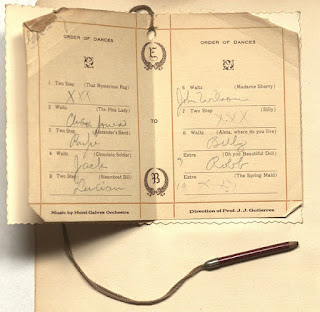 ORDER OF DANCES
1 Two Step (That Mysterious Rag)
XXX
2 Waltz (The Pink Lady)
3 Two Step (Alexander's Band)
Rufe
4 Waltz (Chocolate Soldier)
Jack
5 Two Step (Steamboat Bill)
Lucian
Music by Hotel Galvez Orchestra
E
TO
B
ORDER OF DANCES
6 Waltz (Madame Sherry)
John
7 Two Step (Billy)
XXX
8 Waltz (Alma, where do you live)
Billy
9 Extra (Oh you Beautiful Doll)
Robb
10 Extra (The Spring Maid)
XXX
Direction of Prof. J. J. Gutierres